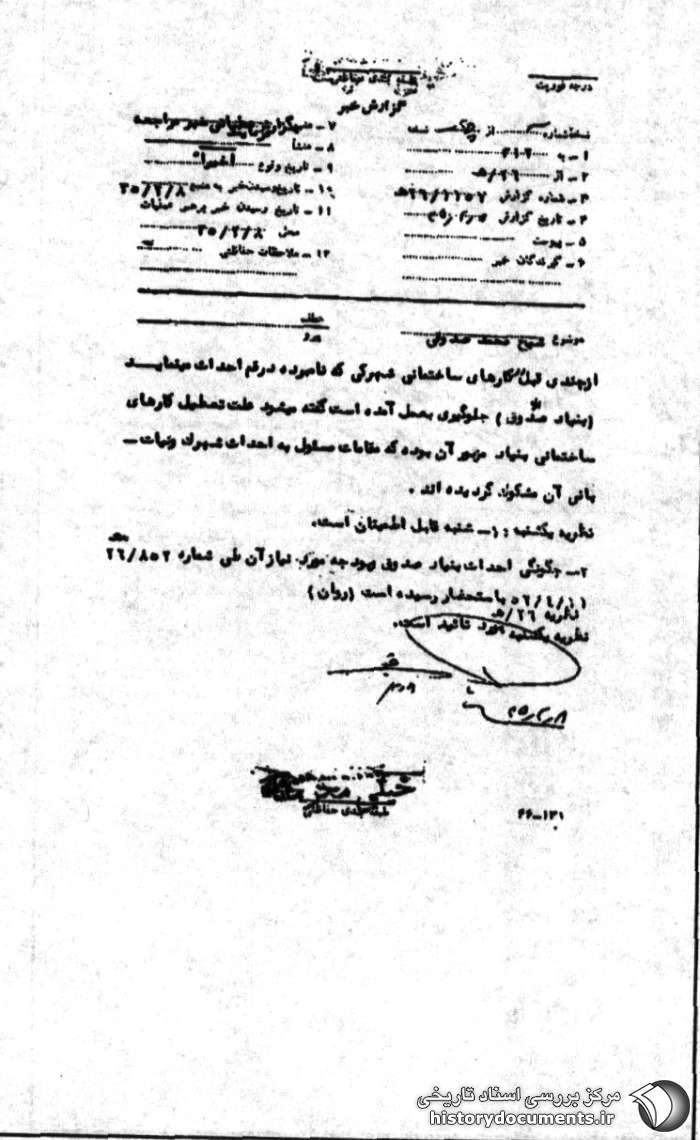 درجه فوریت
طبقه بندی حفاظتی
گزارش خبر
نسخه شماره از نسخه
۱ـ به ۳۱۲
۲ـ از ۲۶/ه
۳ـ شماره گزارش
۴ـ تاریخ گزارش
۵ـ پیوست
۶ـ گیرندگان خبر
۷ـ
۸ـ منشأ
۹ـ تاریخ وقوع
۱۰ـ تاریخ رسیدن خبر به منبع ۳۵/۲/۸
۱۱ـ تاریخ رسیدن خبر برهبر عملیات
محل ۳۵/۲/۸
۱۲ـ ملاحظات حفاظتی
موضوع شیخ محمد صدوقی
عطف
پیرو
ازچندی قبل کارهای ساختمانی شهرکی که نامبرده درقم احداث مینماید
(بنیاد صدوق) جلوگیری بعمل آمده است گفته میشود علت تعطیل کارهای
ساختمانی بنیاد مزبور آن بوده که مقامات مسئول به احداث شهرک ونیات ـ
بانی آن مشکوک گردیده اند .
نظریه یکشنبه : ۱ـ شنبه قابل اطمینان است.
۲ـ چگونگی احداث بنیاد صدوق وبودجه مورد نیاز آن طی شماره ۲۶/۸۵۲
باستحضار رسیده است (روان)
نظریه ۲۶/ه
نظریه یکشنبه مورد تائید است.
طبقه بندی حفاظتی
۴۶-۱۳۱
مرکز بررسی اسناد تاریخی
historydocuments.ir